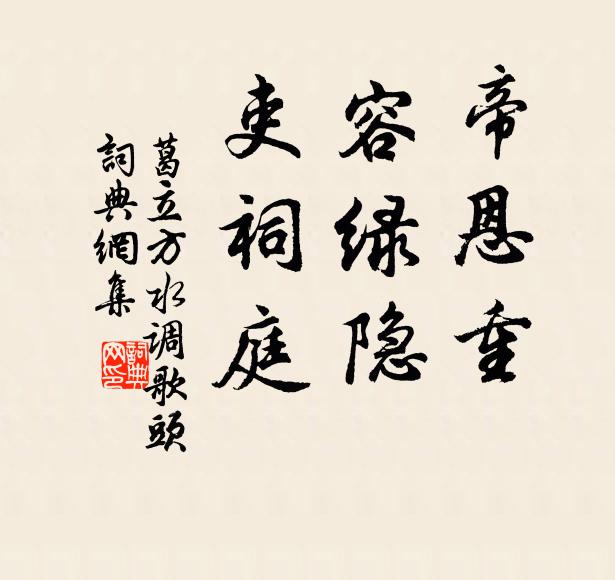 帝恩重
容绿隐
吏祠庭
葛立方水调歌頭
詞典網集
詞典网印